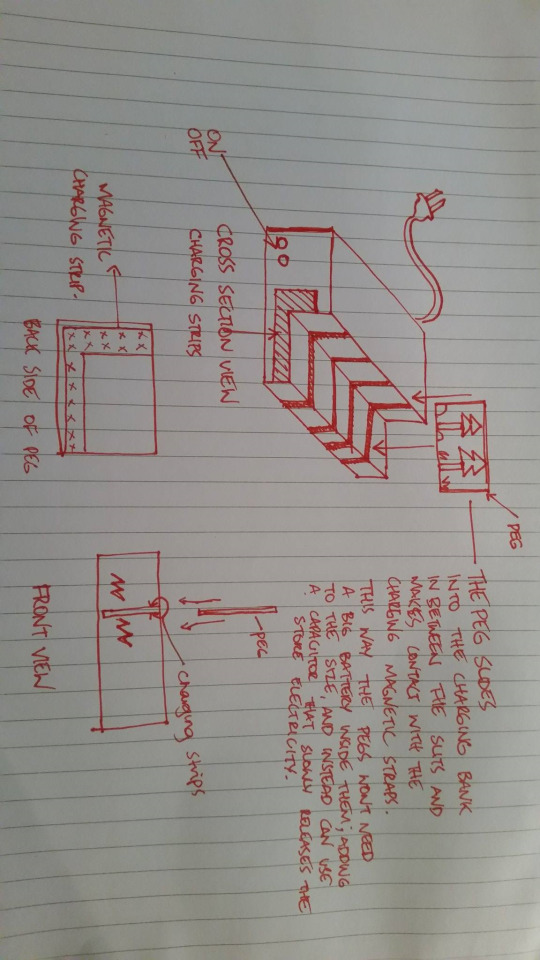 PEG
THE PEG SLIDES
INTO THE CHARGING BANK
IN BETWEEN THE SLITS AND
MAKES CONTACT WITH THE
CHARGING MAGNETIC STRAPS.
THIS WAY THE PEGS WONT NEED
A BIG BATTERY INSIDE THEM; ADDING
TO THE SIZE, AND INSTEAD CAN USE
A CAPACITOR THAT SLOWLY RELEASES THE
STORE ELECTRICITY.
ON
OFF
CROSS SECTION VIEW
CHARGING STRIPS
PEG
Charging strips
MAGNETIC
CHARGING STRIP.
BACK SIDE OF PEG
FRONT VIEW